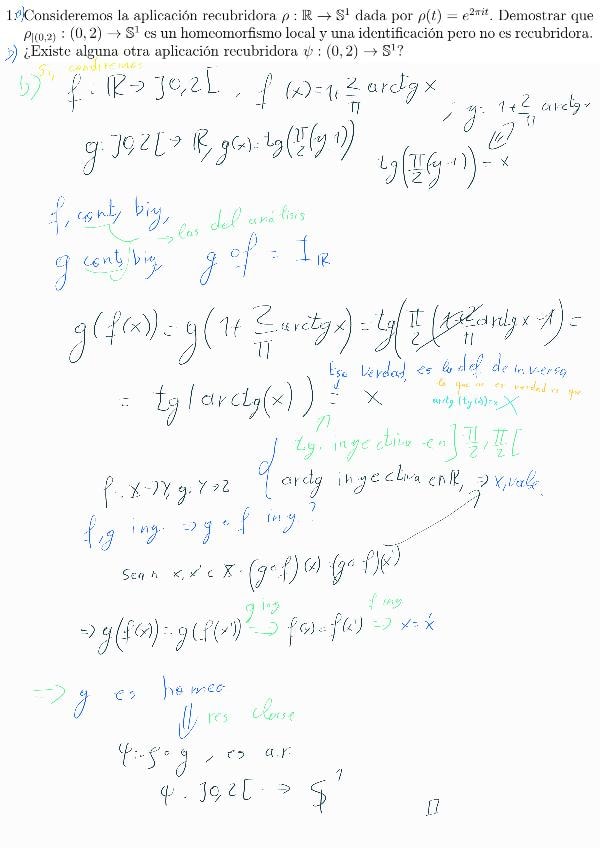 1. a) Consideremos la aplicación recubridora ρ : ℝ → 𝕊¹ dada por ρ(t) = e^{2πit}. Demostrar que
ρ|(0,2) : (0, 2) → 𝕊¹ es un homeomorfismo local y una identificación pero no es recubridora.
b) ¿Existe alguna otra aplicación recubridora ψ : (0, 2) → 𝕊¹?
Sí, consideremos
b) f: ℝ → ]0,2[ , f(x) = 1 + 2/π arctg x
; y = 1 + 2/π arctg x
g: ]0,2[ → ℝ, g(x) = tg(π/2 (y-1))
tg(π/2 (y-1)) = x
f, cont, biy,
→ los del análisis
g cont, biy g∘f = 1_ℝ
g(f(x)) = g(1 + 2/π arctg x) = tg(π/2 (1 + 2/π arctg x - 1)) =
Eso verdad, es la def de inversa,
lo que no es verdad es que
arctg(tg(x)) = x
= tg(arctg(x)) = x
tg. inyectiva en ]-π/2, π/2[
arctg inyectiva en ℝ, ⇒ x, vale.
f: X → Y, g: Y → Z
f, g iny. ⇒ g∘f iny?
Sean x, x' ∈ X : (g∘f)(x) = (g∘f)(x')
g iny f iny
⇒ g(f(x)) = g(f(x')) ⇒ f(x) = f(x') ⇒ x = x'
⇒ g es homeo
⇓ res clase
ψ = ρ∘g, es a.r.
ψ: ]0,2[ → 𝕊¹
[]